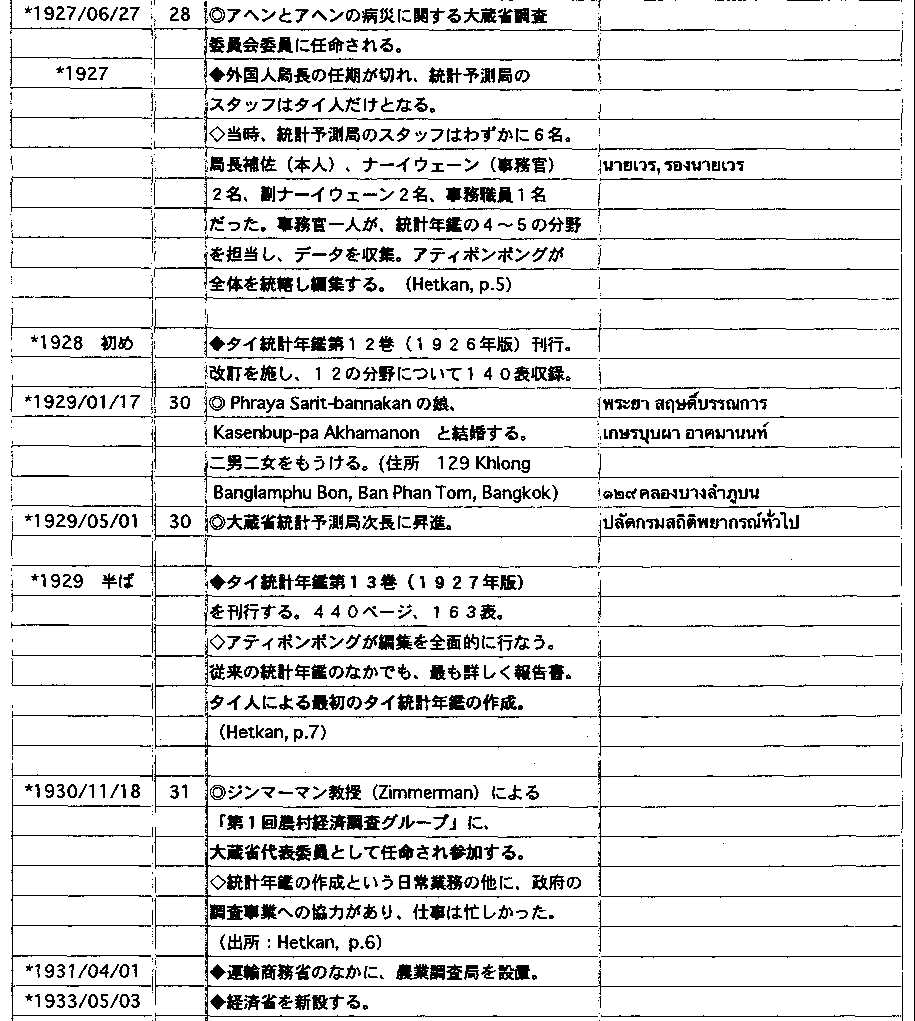 *1927/06/27 28 ◎アヘンとアヘンの病災に関する大蔵省調査
委員会委員に任命される。
*1927 ◆外国人局長の任期が切れ、統計予測局の
スタッフはタイ人だけとなる。
◇当時、統計予測局のスタッフはわずかに６名。
局長補佐（本人）、ナーイウェーン（事務官） นายเวร, รองนายเวร
２名、副ナーイウェーン２名、事務職員１名
だった。事務官一人が、統計年鑑の４～５の分野
を担当し、データを収集。アティポンポングが
全体を統轄し編集する。（Hetkan, p.5）
*1928　初め ◆タイ統計年鑑第１２巻（１９２６年版）刊行。
改訂を施し、１２の分野について１４０表収録。
*1929/01/17 30 ◎ Phraya Sarit-bannakan の娘、 พระยา สฤษดิ์บรรณการ
Kasenbup-pa Akhamanon　と結婚する。 เกษรบุบผา อาคมานนท์
二男二女をもうける。(住所　129 Khlong
Banglamphu Bon, Ban Phan Tom, Bangkok) ๑๒๙ คลองบางลำภูบน
*1929/05/01 30 ◎大蔵省統計予測局次長に昇進。 ปลัดกรมสถิติพยากรณ์ทั่วไป
*1929　半ば ◆タイ統計年鑑第１３巻（１９２７年版）
を刊行する。４４０ページ、１６３表。
◇アティポンポングが編集を全面的に行なう。
従来の統計年鑑のなかでも、最も詳しく報告書。
タイ人による最初のタイ統計年鑑の作成。
（Hetkan, p.7）
*1930/11/18 31 ◎ジンマーマン教授（Zimmerman）による
「第１回農村経済調査グループ」に、
大蔵省代表委員として任命され参加する。
◇統計年鑑の作成という日常業務の他に、政府の
調査事業への協力があり、仕事は忙しかった。
（出所：Hetkan, p.6）
*1931/04/01 ◆運輸商務省のなかに、農業調査局を設置。
*1933/05/03 ◆経済省を新設する。